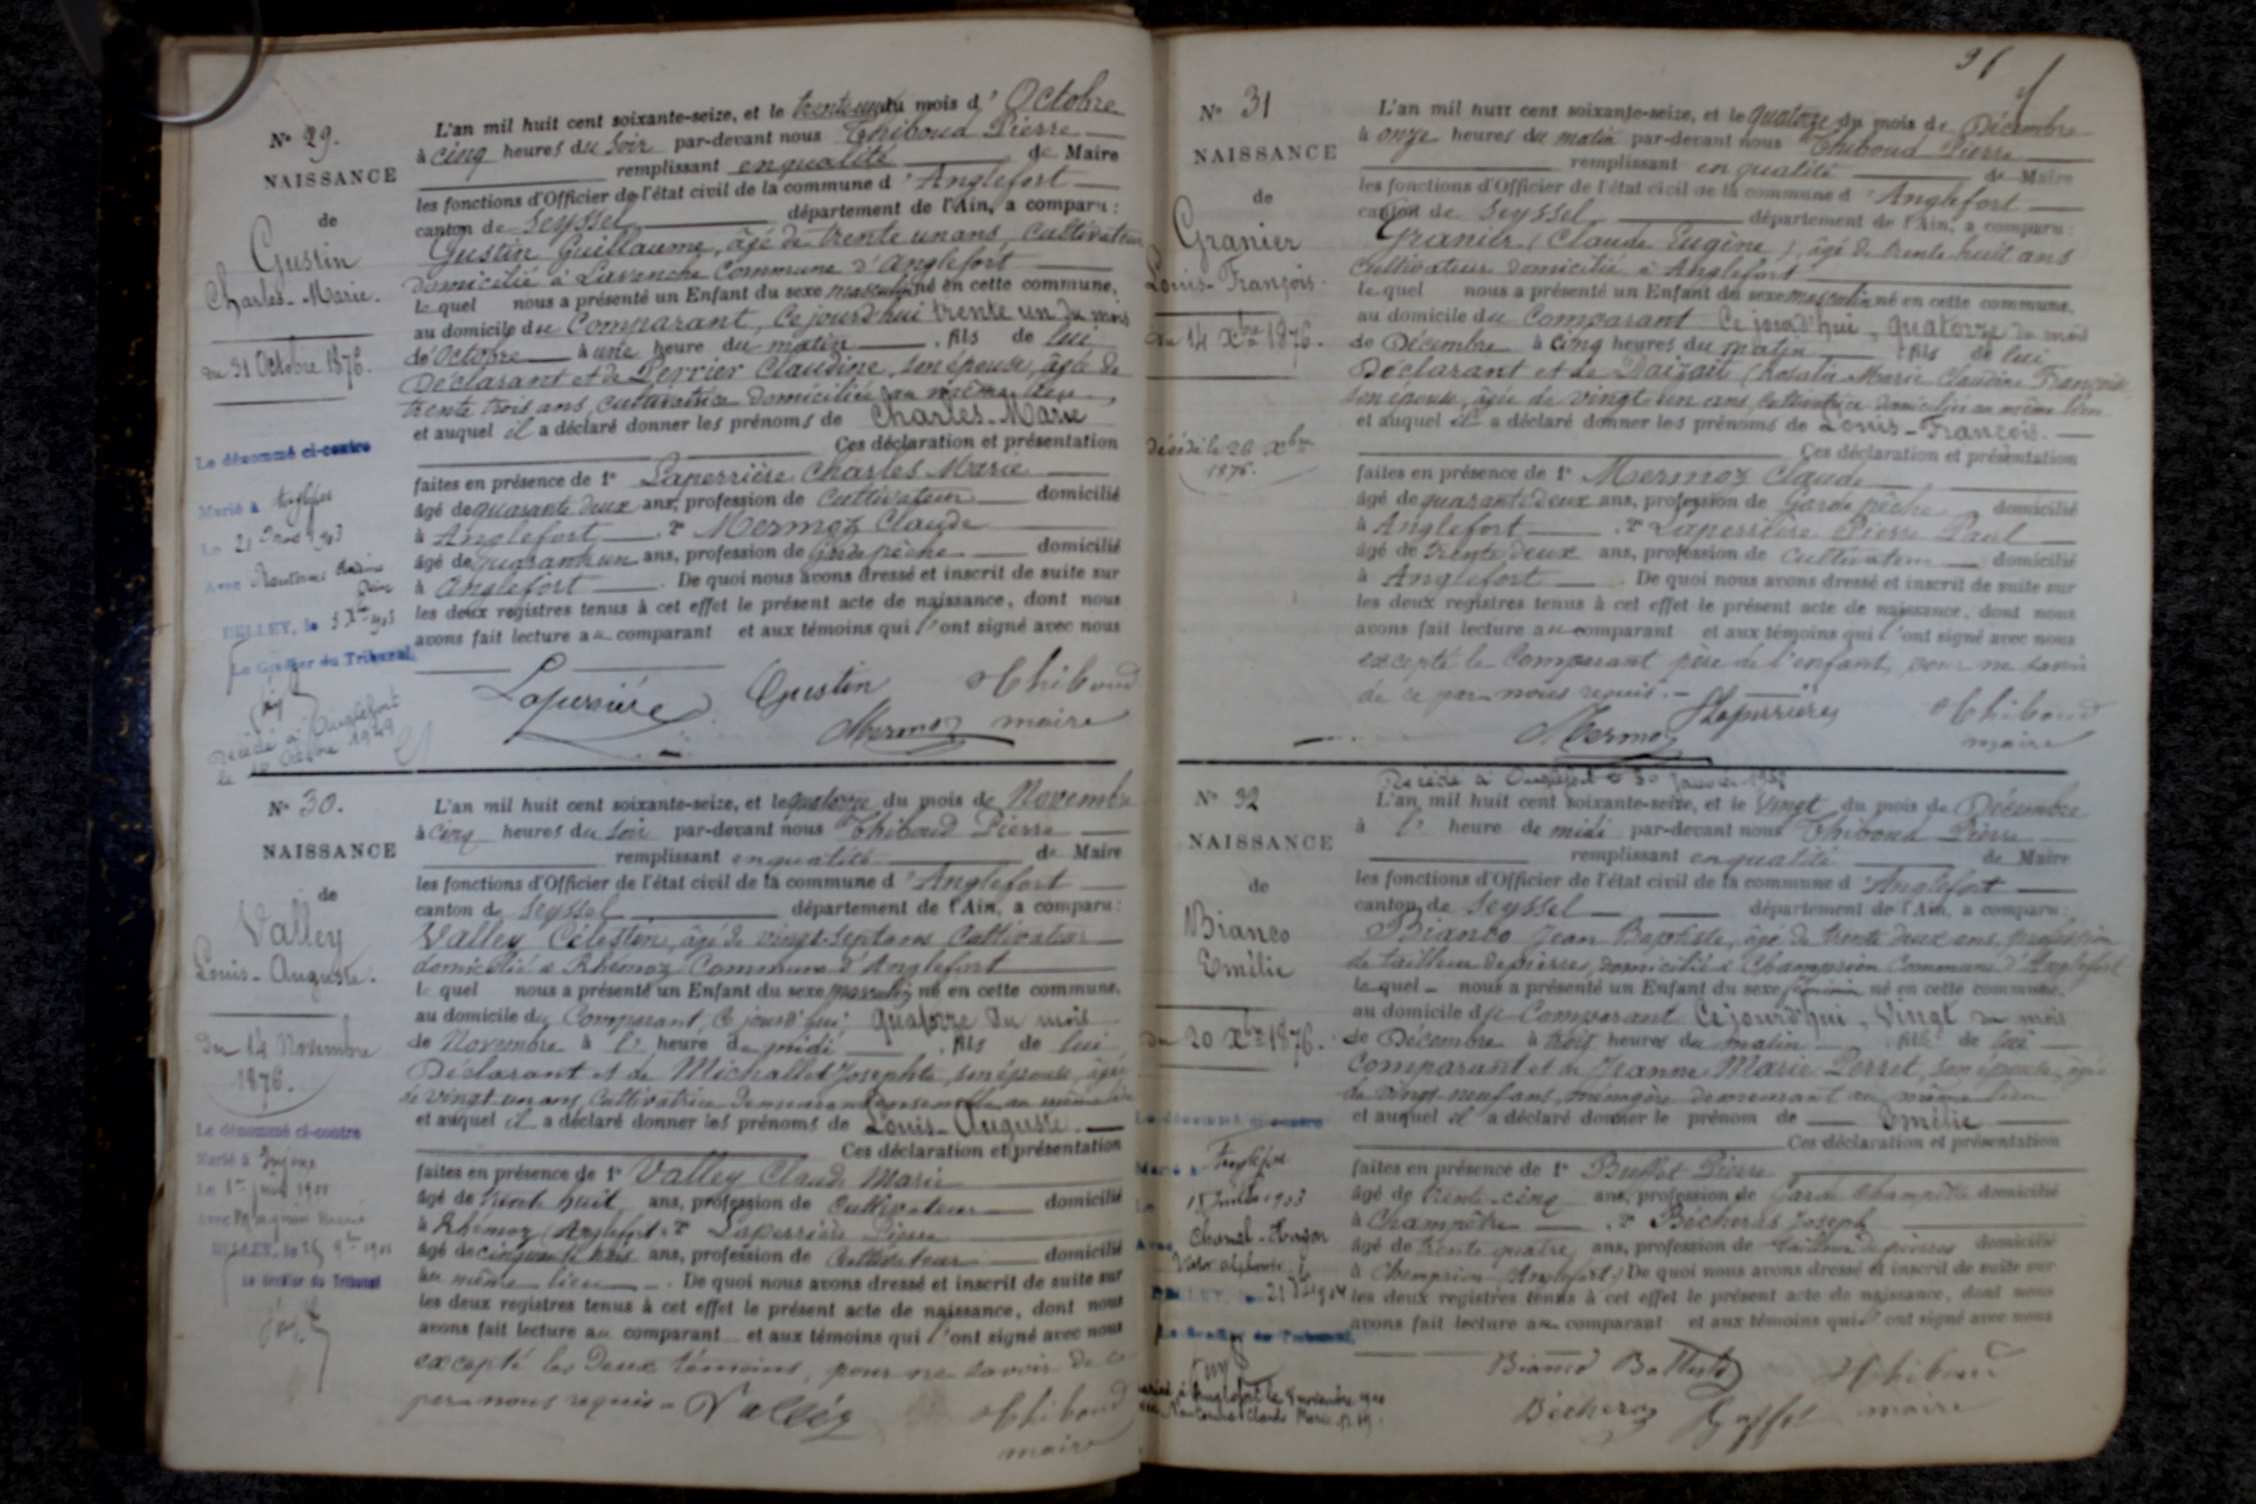 Nº 29.
NAISSANCE
de
Gustin
Charles-Marie.
du 31 Octobre 1876.
Le dénommé ci-contre
Marié à Anglefort
Le 21
Avec
BELLEY, le 5 Xbre 1903
Le Greffier du Tribunal,
Décédé à Anglefort
le 1949
L'an mil huit cent soixante-seize, et le trente un du mois d'Octobre
à cinq heures du soir par-devant nous Thiboud Pierre
remplissant en qualité de Maire
les fonctions d'Officier de l'état civil de la commune d'Anglefort
canton de Seyssel département de l'Ain, a comparu :
Gustin Guillaume, âgé de trente un ans, cultivateur
domicilié à Lavanche Commune d'Anglefort
le quel nous a présenté un Enfant du sexe masculin né en cette commune,
au domicile du Comparant, Ce jourd'hui trente un du mois
de Octobre à une heure du matin, fils de lui
Déclarant et de Perrier Claudine, son épouse, âgée de
trente trois ans, cultivatrice domiciliée au même lieu
et auquel il a déclaré donner les prénoms de Charles-Marie
Ces déclaration et présentation
faites en présence de 1º Laperrière Charles Marie
âgé de quarante deux ans, profession de Cultivateur domicilié
à Anglefort, 2º Mermoz Claude
âgé de quarante un ans, profession de Garde pêche domicilié
à Anglefort. De quoi nous avons dressé et inscrit de suite sur
les deux registres tenus à cet effet le présent acte de naissance, dont nous
avons fait lecture au comparant et aux témoins qui l'ont signé avec nous
Laperrière Gustin Thiboud
Mermoz maire
Nº 30.
NAISSANCE
de
Valley
Louis-Auguste.
du 14 Novembre
1876.
Le dénommé ci-contre
Marié à
Le 1er
Avec
BELLEY, le
Le Greffier du Tribunal
L'an mil huit cent soixante-seize, et le quatorze du mois de Novembre
à cinq heures du soir par-devant nous Thiboud Pierre
remplissant en qualité de Maire
les fonctions d'Officier de l'état civil de la commune d'Anglefort
canton de Seyssel département de l'Ain, a comparu :
Valley Célestin, âgé de vingt-sept ans Cultivateur
domicilié à Rhémoz Commune d'Anglefort
le quel nous a présenté un Enfant du sexe masculin né en cette commune,
au domicile du Comparant, Ce jourd'hui, quatorze du mois
de Novembre à l' heure de midi, fils de lui
Déclarant et de Michallet Josephte, son épouse, âgée
de vingt un ans, Cultivatrice demeurant ensemble au même lieu
et auquel il a déclaré donner les prénoms de Louis-Auguste.
Ces déclaration et présentation
faites en présence de 1º Valley Claude Marie
âgé de trente huit ans, profession de Cultivateur domicilié
à Rhémoz (Anglefort), 2º Laperrière Pierre
âgé de cinquante trois ans, profession de Cultivateur domicilié
au même lieu. De quoi nous avons dressé et inscrit de suite sur
les deux registres tenus à cet effet le présent acte de naissance, dont nous
avons fait lecture au comparant et aux témoins qui l'ont signé avec nous
excepté les deux témoins, pour ne savoir de ce
par nous requis. Valléy Thiboud
maire
Nº 31
NAISSANCE
de
Granier
Louis-François.
du 14 Xbre 1876.
Décédé le 26 Xbre
1876.
L'an mil huit cent soixante-seize, et le quatorze du mois de Décembre
à onze heures du matin par-devant nous Thiboud Pierre
remplissant en qualité de Maire
les fonctions d'Officier de l'état civil de la commune d'Anglefort
canton de Seyssel département de l'Ain, a comparu :
Granier (Claude Eugène), âgé de trente huit ans
Cultivateur domicilié à Anglefort
le quel nous a présenté un Enfant du sexe masculin né en cette commune,
au domicile du Comparant Ce jourd'hui, quatorze du mois
de Décembre à cinq heures du matin, fils de lui
Déclarant et de (Rosalie Marie Claudine Françoise
son épouse, âgée de vingt un ans, cultivatrice domiciliée au même lieu
et auquel il a déclaré donner les prénoms de Louis-François.
Ces déclaration et présentation
faites en présence de 1º Mermoz Claude
âgé de quarante deux ans, profession de Garde pêche domicilié
à Anglefort, 2º Laperrière Pierre Paul
âgé de trente deux ans, profession de Cultivateur domicilié
à Anglefort. De quoi nous avons dressé et inscrit de suite sur
les deux registres tenus à cet effet le présent acte de naissance, dont nous
avons fait lecture au comparant et aux témoins qui l'ont signé avec nous
excepté le Comparant père de l'enfant, pour ne savoir
de ce par nous requis.
Laperrière Thiboud
Mermoz maire
Nº 32
NAISSANCE
de
Bianco
Emélie
du 20 Xbre 1876.
Le dénommé ci-contre
Marié à Anglefort
Le 18 Juillet 1903
Avec
BELLEY, le 21
Le Greffier du Tribunal,
Marié à Anglefort le 8 novembre
Claude Marie
Décédé à Anglefort le 30 Janvier
L'an mil huit cent soixante-seize, et le Vingt du mois de Décembre
à l' heure de midi par-devant nous Thiboud Pierre
remplissant en qualité de Maire
les fonctions d'Officier de l'état civil de la commune d'Anglefort
canton de Seyssel département de l'Ain, a comparu :
Bianco Jean Baptiste, âgé de trente deux ans, profession
de tailleur de pierres, domicilié à Champrion Commune d'Anglefort
le quel nous a présenté un Enfant du sexe féminin né en cette commune,
au domicile du Comparant Ce jourd'hui, Vingt du mois
de Décembre à trois heures du matin, fille de lui
comparant et de Jeanne Marie Perret, son épouse, âgée
de vingt-neuf ans, ménagère demeurant au même lieu
et auquel il a déclaré donner le prénom de Emélie
Ces déclaration et présentation
faites en présence de 1º Buffet Pierre
âgé de trente-cinq ans, profession de Garde Champêtre domicilié
à Champêtre, 2º Bécheras Joseph
âgé de trente quatre ans, profession de tailleur de pierres domicilié
à Champrion (Anglefort.) De quoi nous avons dressé et inscrit de suite sur
les deux registres tenus à cet effet le présent acte de naissance, dont nous
avons fait lecture au comparant et aux témoins qui l'ont signé avec nous
Bianco Battista Thiboud
Bécheras Buffet maire